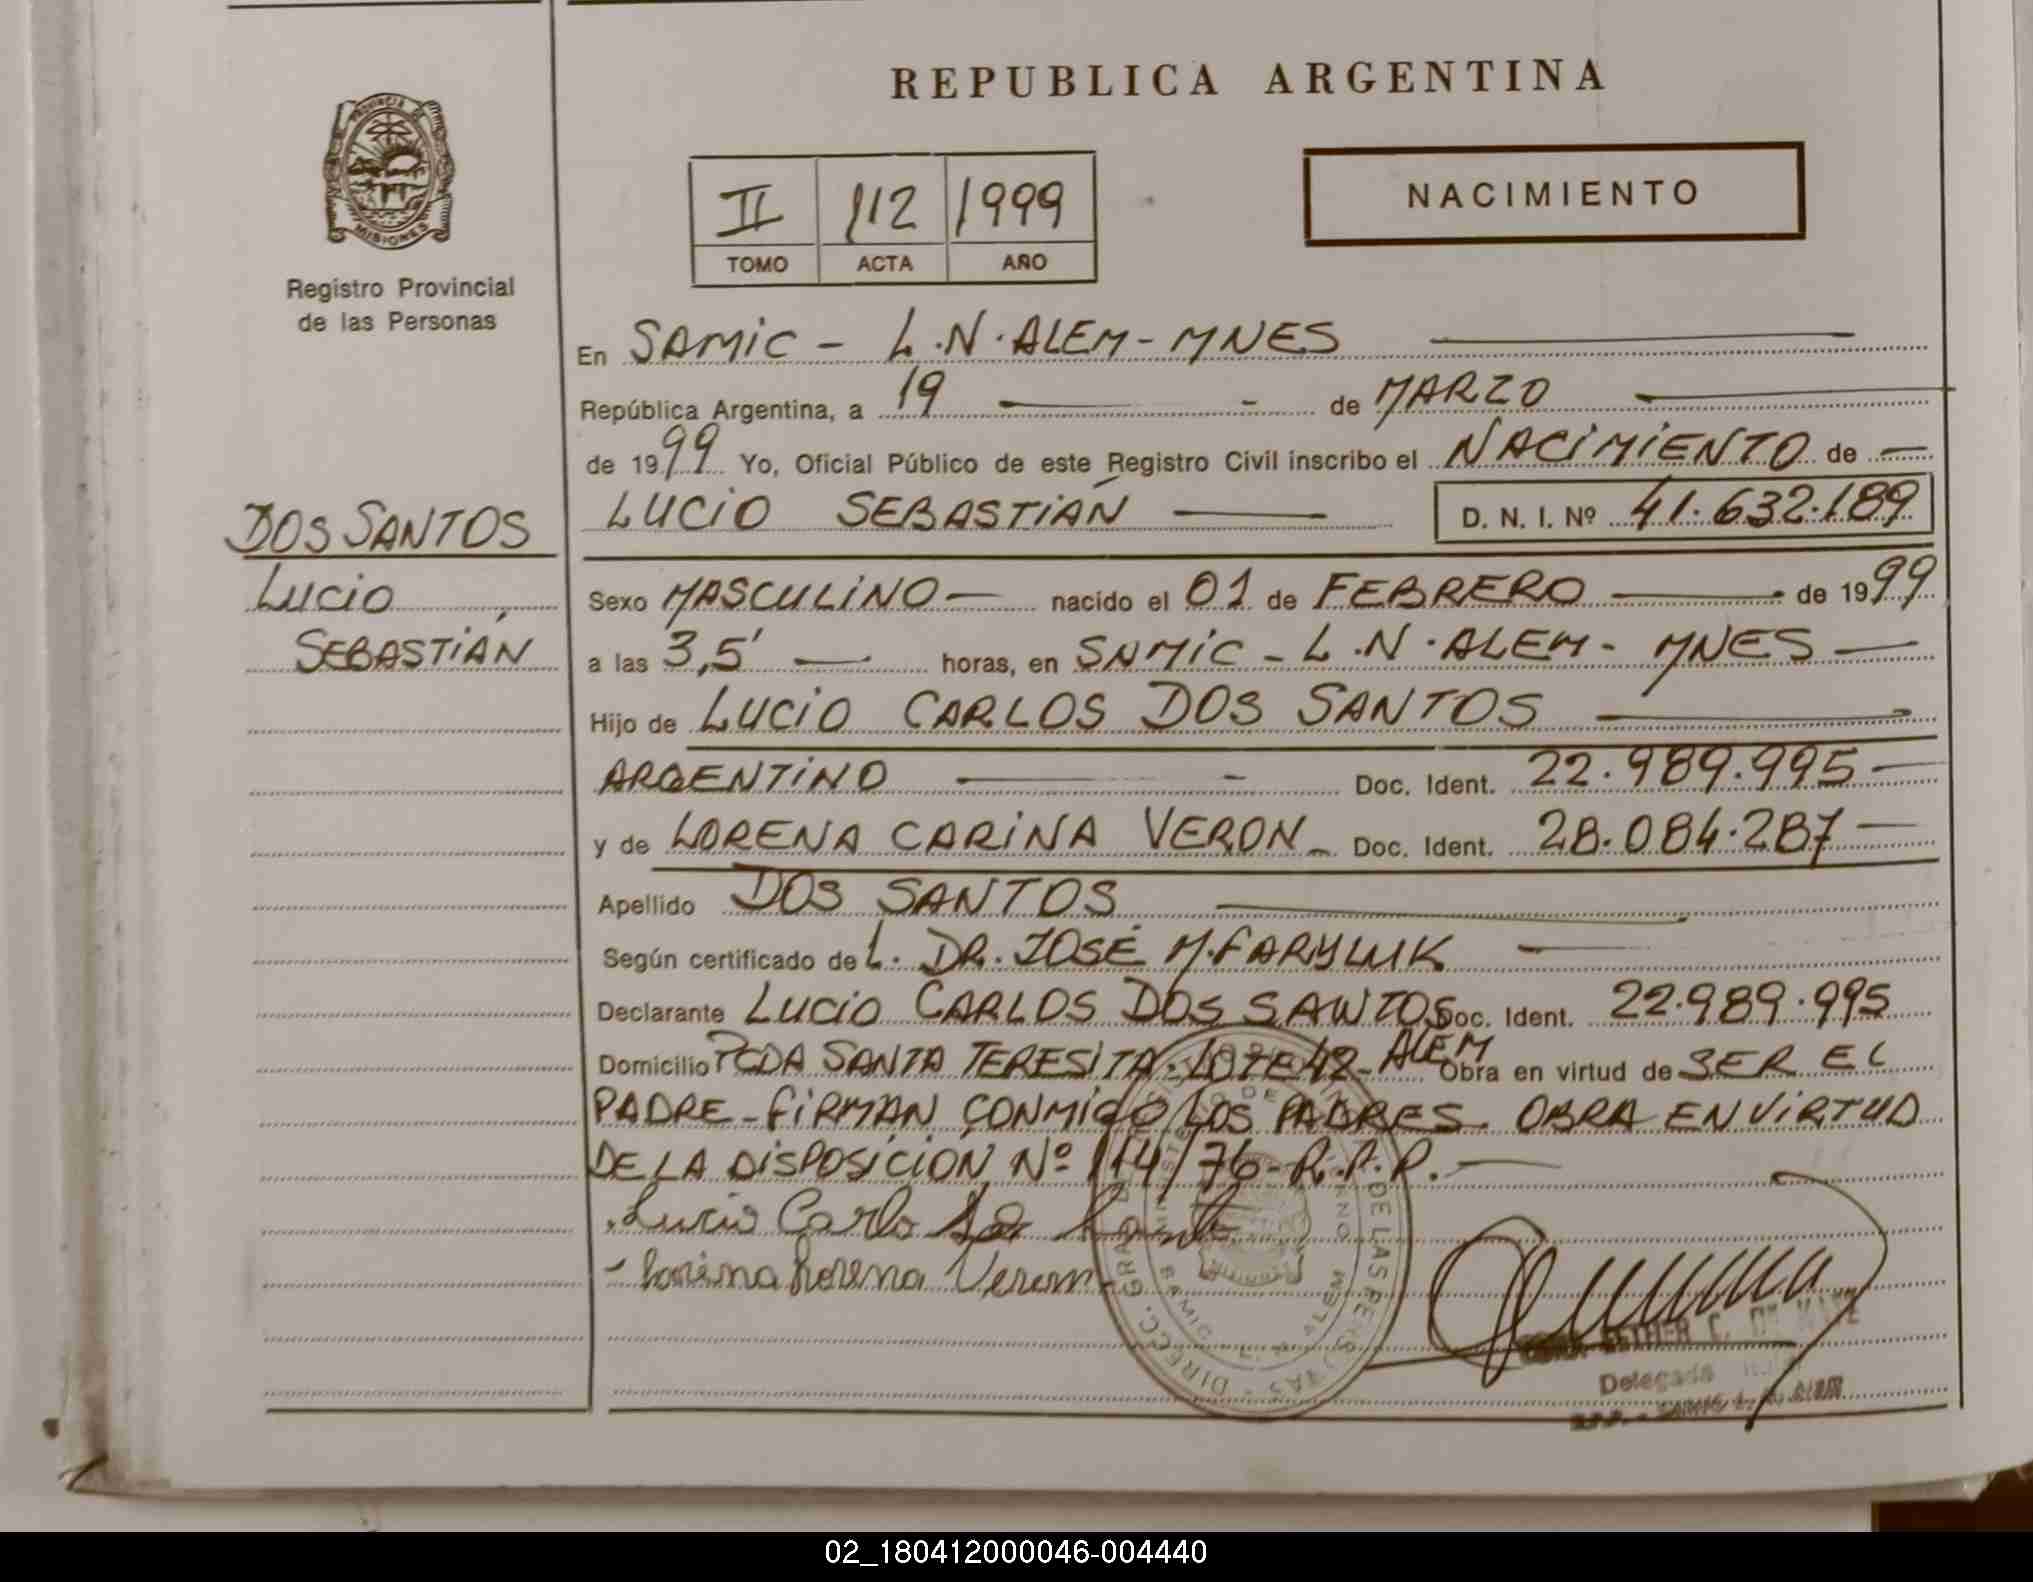 REPUBLICA ARGENTINA
PROVINCIA DE
MISIONES
Registro Provincial
de las Personas
II 112 1999
TOMO ACTA AÑO
NACIMIENTO
En SAMIC - L.N.ALEM-MNES
República Argentina, a 19 de MARZO
de 1999 Yo, Oficial Público de este Registro Civil inscribo el NACIMIENTO de
LUCIO SEBASTIÁN D. N. I. Nº 41.632.189
DOS SANTOS
LUCIO
SEBASTIÁN
Sexo MASCULINO nacido el 01 de FEBRERO de 1999
a las 3,5' horas, en SAMIC - L.N.ALEM- MNES
Hijo de LUCIO CARLOS DOS SANTOS
ARGENTINO Doc. Ident. 22.989.995
y de LORENA CARINA VERON Doc. Ident. 28.084.287
Apellido DOS SANTOS
Según certificado de L. DR. JOSÉ M. FARYLUK
Declarante LUCIO CARLOS DOS SANTOS Doc. Ident. 22.989.995
Domicilio PCDA SANTA TERESITA-LOTE 42-ALEM Obra en virtud de SER EL
PADRE-FIRMAN CONMIGO LOS PADRES. OBRA EN VIRTUD
DE LA DISPOSICIÓN Nº 114/76-R.P.P.
Lucio Carlo
- Lorena Verom
DE LAS PERSONAS
SAMIC - L. N. ALEM
ESTHER C. DE
Delegada
R.P.P. - SAMIC L. N. ALEM
02_180412000046-004440